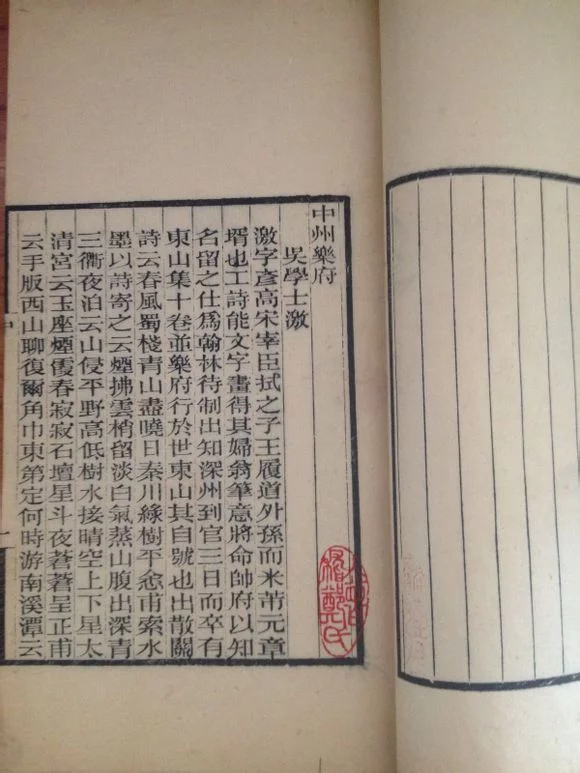 中州樂府
吳學士激
激字彥高宋宰臣拭之子王履道外孫而米芾元章
壻也工詩能文字畫得其婦翁筆意將命帥府以知
名留之仕爲翰林待制出知深州到官三日而卒有
東山集十卷並樂府行於世東山其自號也出散關
詩云春風蜀棧青山盡曉日秦川綠樹平愈甫索水
墨以詩寄之云煙拂雲梢留淡白氣蒸山腹出深青
三衢夜泊云山侵平野高低樹水接晴空上下星太
清宮云玉座煙霞春寂寂石壇星斗夜蒼蒼呈正甫
云手版西山聊復爾角巾東第定何時游南溪潭云